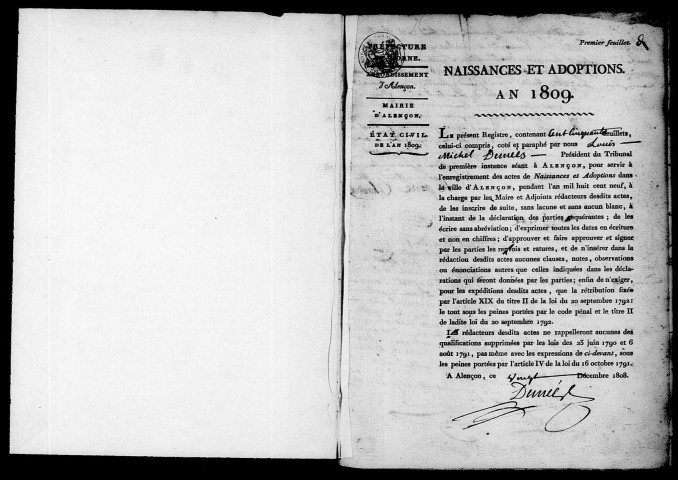 Premier feuillet.
PRÉFECTURE
ORNE.
ARRONDISSEMENT
d'Alençon.
MAIRIE
D'ALENÇON.
ÉTAT CIVIL
DE L'AN 1809.
NAISSANCES ET ADOPTIONS.
AN 1809.
Le présent Registre, contenant Cent Cinquante feuillets,
celui-ci compris, coté et paraphé par nous Louis
Michel Demées Président du Tribunal
de première instance séant à ALENÇON, pour servir à
l'enregistrement des actes de Naissances et Adoptions dans
la ville d'ALENÇON, pendant l'an mil huit cent neuf, à
la charge par les Maire et Adjoints rédacteurs desdits actes,
de les inscrire de suite, sans lacune et sans aucun blanc, à
l'instant de la déclaration des parties requérantes ; de les
écrire sans abréviation ; d'exprimer toutes les dates en écriture
et non en chiffres ; d'approuver et faire approuver et signer
par les parties les renvois et ratures, et de n'insérer dans la
rédaction desdits actes aucunes clauses, notes, observations
ou énonciations autres que celles indiquées dans les décla-
rations qui seront données par les parties ; enfin de n'exiger,
pour les expéditions desdits actes, que la rétribution fixée
par l'article XIX du titre II de la loi du 20 septembre 1792 :
le tout sous les peines portées par le code pénal et le titre II
de ladite loi du 20 septembre 1792.
Les rédacteurs desdits actes ne rappelleront aucunes des
qualifications supprimées par les lois des 23 juin 1790 et 6
août 1791, pas même avec les expressions de ci-devant, sous
les peines portées par l'article IV de la loi du 16 octobre 1791.
A Alençon, ce vingt Décembre 1808.
Demées